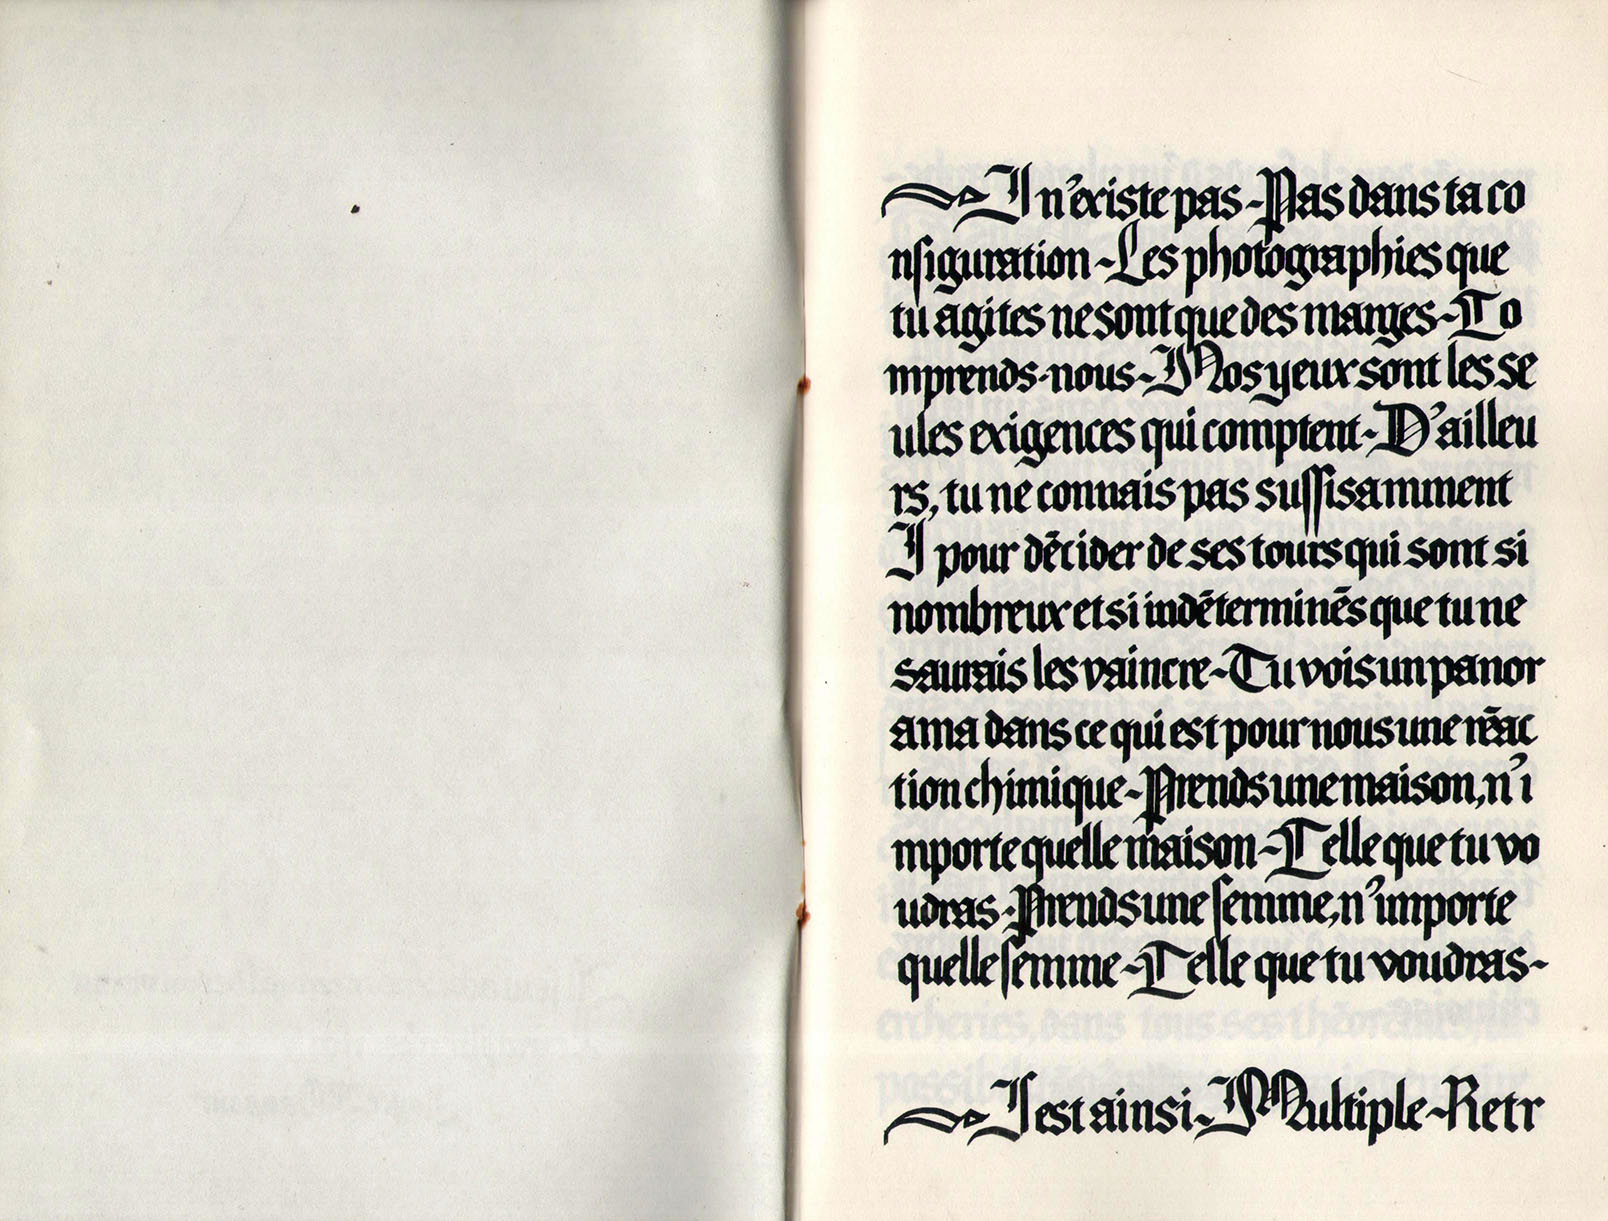 I n'existe pas - Pas dans ta co
nfiguration - Les photographies que
tu agites ne sont que des marges - Co
mprends-nous - Nos yeux sont les se
ules exigences qui comptent - D'ailleu
rs, tu ne connais pas suffisamment
I pour décider de ses tours qui sont si
nombreux et si indéterminés que tu ne
saurais les vaincre - Tu vois un panor
ama dans ce qui est pour nous une réac
tion chimique - Prends une maison, n'i
mporte quelle maison - Telle que tu vo
udras - Prends une femme, n'importe
quelle femme - Telle que tu voudras -
I est ainsi - Multiple - Retr